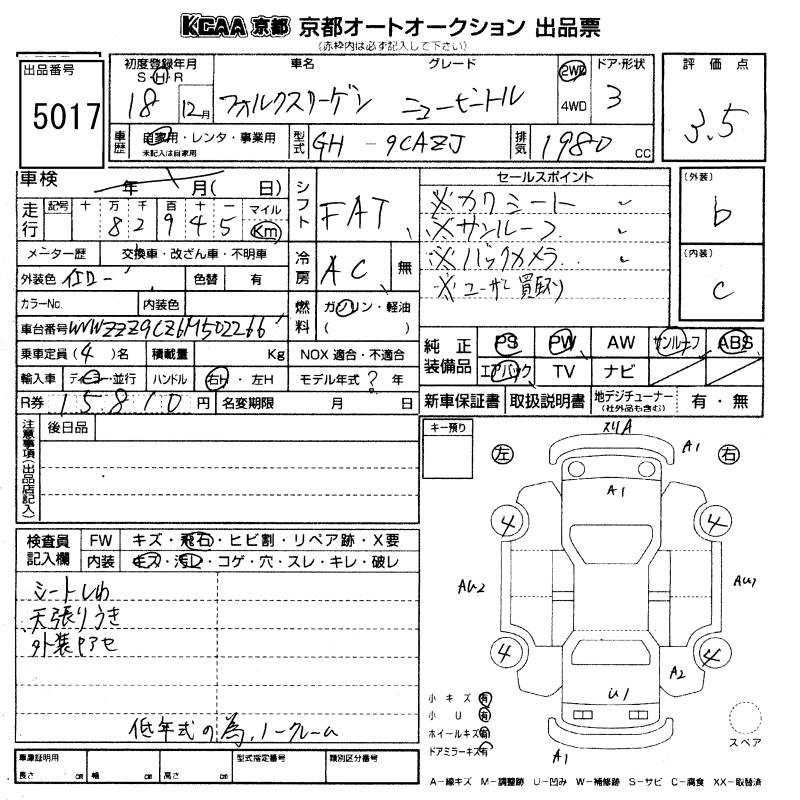 KCAA 京都 京都オートオークション 出品票
(赤枠内は必ず記入して下さい)
出品番号 5017
初度登録年月 S・H・R 18 12月
車名 フォルクスワーゲン
グレード ニュービートル
2WD 4WD
ドア・形状 3
評価点 3.5
車歴 自家用・レンタ・事業用
未記入は自家用
型式 GH-9CAZJ
排気 1980 cc
車検 年 月( 日)
シフト FAT
セールスポイント
※カワシート
※サンルーフ
※バックカメラ
※ユーザー買取り
(外装) b
(内装) c
走行 記号 十 万 千 百 十 一 マイル Km
8 2 9 4 5
メーター歴 交換車・改ざん車・不明車
冷房 AC 無
外装色 イエロー 色替 有
カラーNo. 内装色
燃料 ガソリン・軽油 ( )
車台番号 WVWZZZ9CZ6M502266
乗車定員 (4)名 積載量 Kg NOX 適合・不適合
純正装備品 PS PW AW サンルーフ ABS
エアバック TV ナビ
輸入車 ディーラー・並行 ハンドル 右H・左H モデル年式 ? 年
R券 15810円 名変期限 月 日
新車保証書 取扱説明書 地デジチューナー (社外品も含む) 有・無
注意事項(出品店記入)
後日品
キー預り
スリA
左 右
A1
A1
4 4
AU2 AU1
4 4
A2
U1
A1
検査員記入欄
FW キズ・飛石・ヒビ割・リペア跡・X要
内装 キズ・汚レ・コゲ・穴・スレ・キレ・破レ
シートしわ
天張りうき
外装ヤアセ
低年式の為、ノークレーム
小キズ 有
小U 有
ホイールキズ 有
ドアミラーキズ 有
スペア
車庫証明用
長さ cm 幅 cm 高さ cm
型式指定番号 類別区分番号
A-線キズ M-調整跡 U-凹み W-補修跡 S-サビ C-腐食 XX-取替済